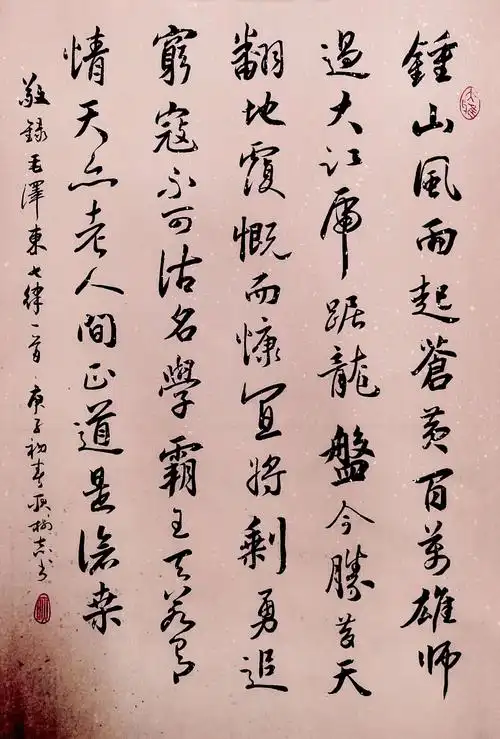 鍾山風雨起蒼黃百萬雄師
過大江虎踞龍盤今勝昔天
翻地覆慨而慷宜將剩勇追
窮寇不可沽名學霸王天若有
情天亦老人間正道是滄桑
敬錄毛澤東七律一首 庚子初春